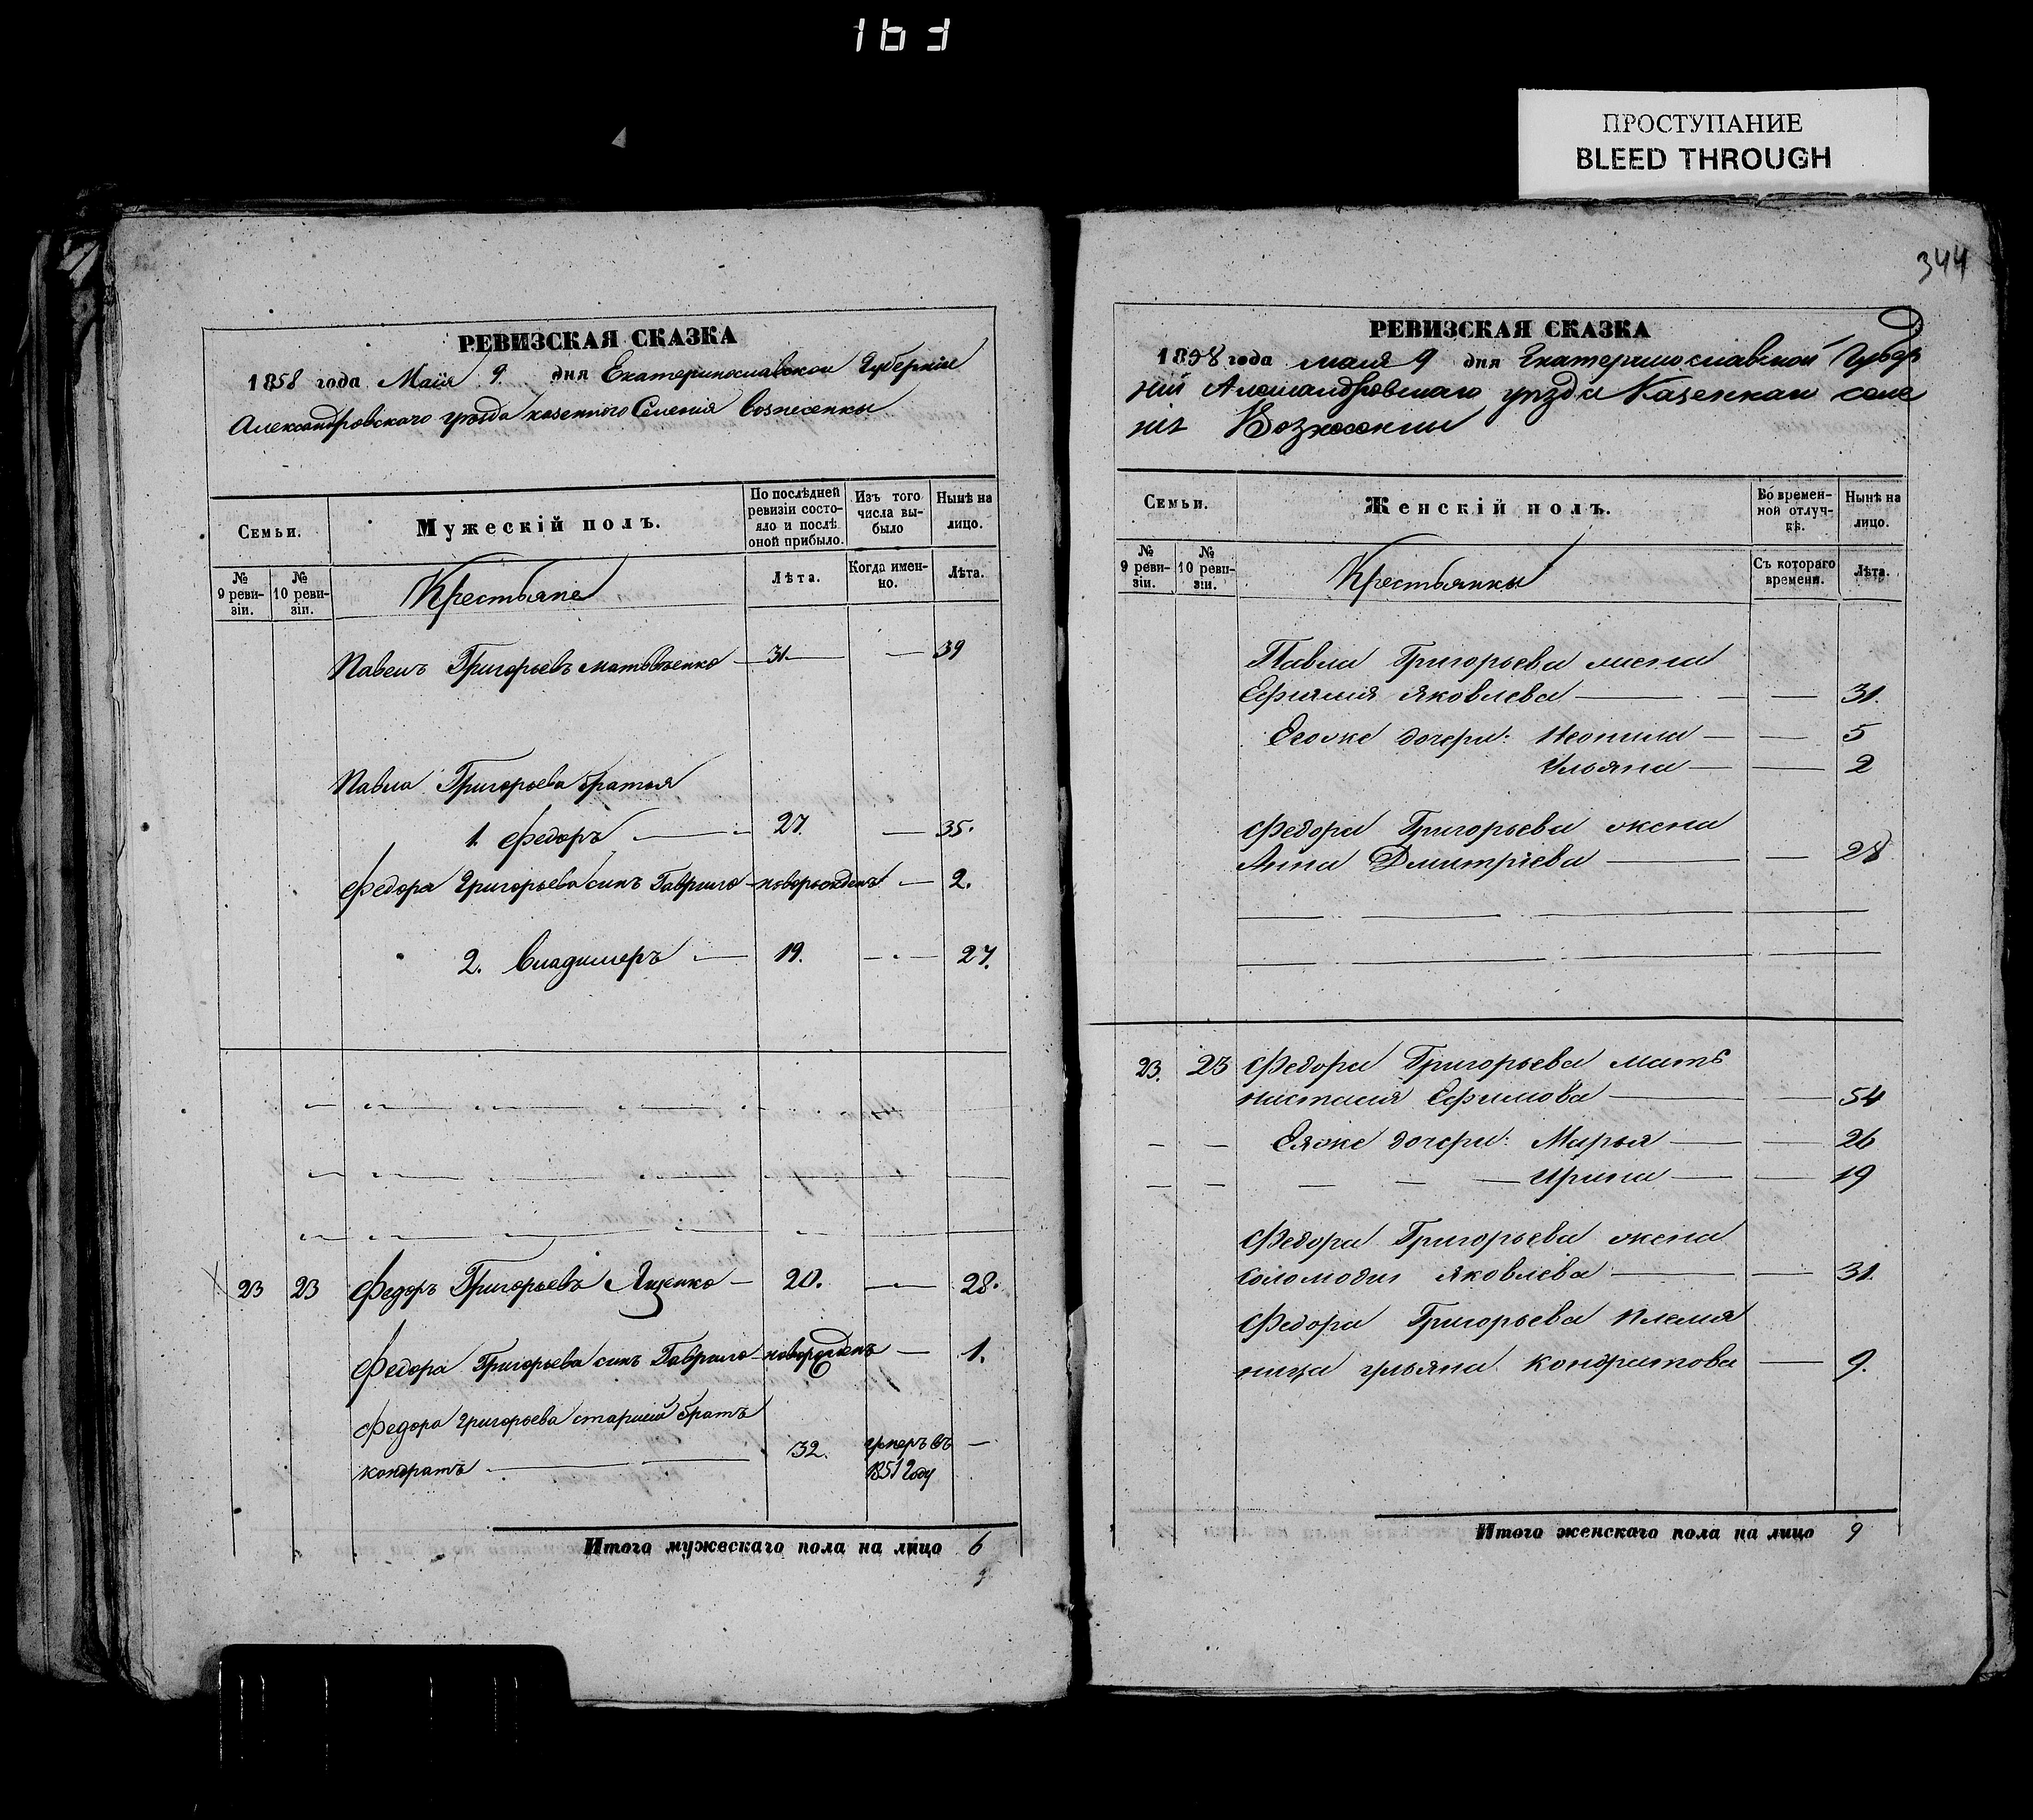 163
ПРОСТУПАНИЕ
BLEED THROUGH
344
РЕВИЗСКАЯ СКАЗКА
1858 года Маія 9 дня Екатеринославской Губерніи
Александровскаго уѣзда казенного Селенія Вознесенки
Семьи.
Мужескій полъ.
По послѣдней ревизіи состояло и послѣ оной прибыло.
Изъ того числа выбыло
Нынѣ на лицо.
№ 9 ревизіи.
№ 10 ревизіи.
Крестьяне
Лѣта.
Когда именно.
Лѣта.
Павелъ Григорьевъ Матвѣенко — 31 — — 39
Павла Григорьева братья
1. Федоръ — 27. — 35.
Федора Григорьева сынъ Гаврило — новорожденъ — 2.
2. Владимеръ — 19. — 27.
23 23 Федоръ Григорьевъ Ященко — 20. — 28.
Федора Григорьева сынъ Гаврило — новорожденъ — 1.
Федора Григорьева старшій братъ
Кондратъ — 32. умеръ въ 1851 году —
Итого мужескаго пола на лицо 6
РЕВИЗСКАЯ СКАЗКА
1858 года маія 9 дня Екатеринославской Губер
ніи Александровскаго уѣзда Казеннаи селе
нія
Семьи.
Женскій полъ.
Во временной отлучкѣ.
Нынѣ на лицо.
№ 9 ревизіи.
№ 10 ревизіи.
Крестьянки
Съ котораго времени.
Лѣта.
Павла Григорьева жена
Ефимія Яковлева — — 31.
Егоже дочери: Неонила — — 5
Ульяна — — 2
Федора Григорьева жена
Анна Дмитріева — — 28
23. 23 Федора Григорьева мать
Настасія Ефимова — — 54
— — Еяже дочери: Марья — — 26
— — — — — Ирина — — 19
Федора Григорьева жена
Соломодия Яковлева — — 31.
Федора Григорьева племя
ница Ульяна Кондратова — 9.
Итого женскаго пола на лицо 9